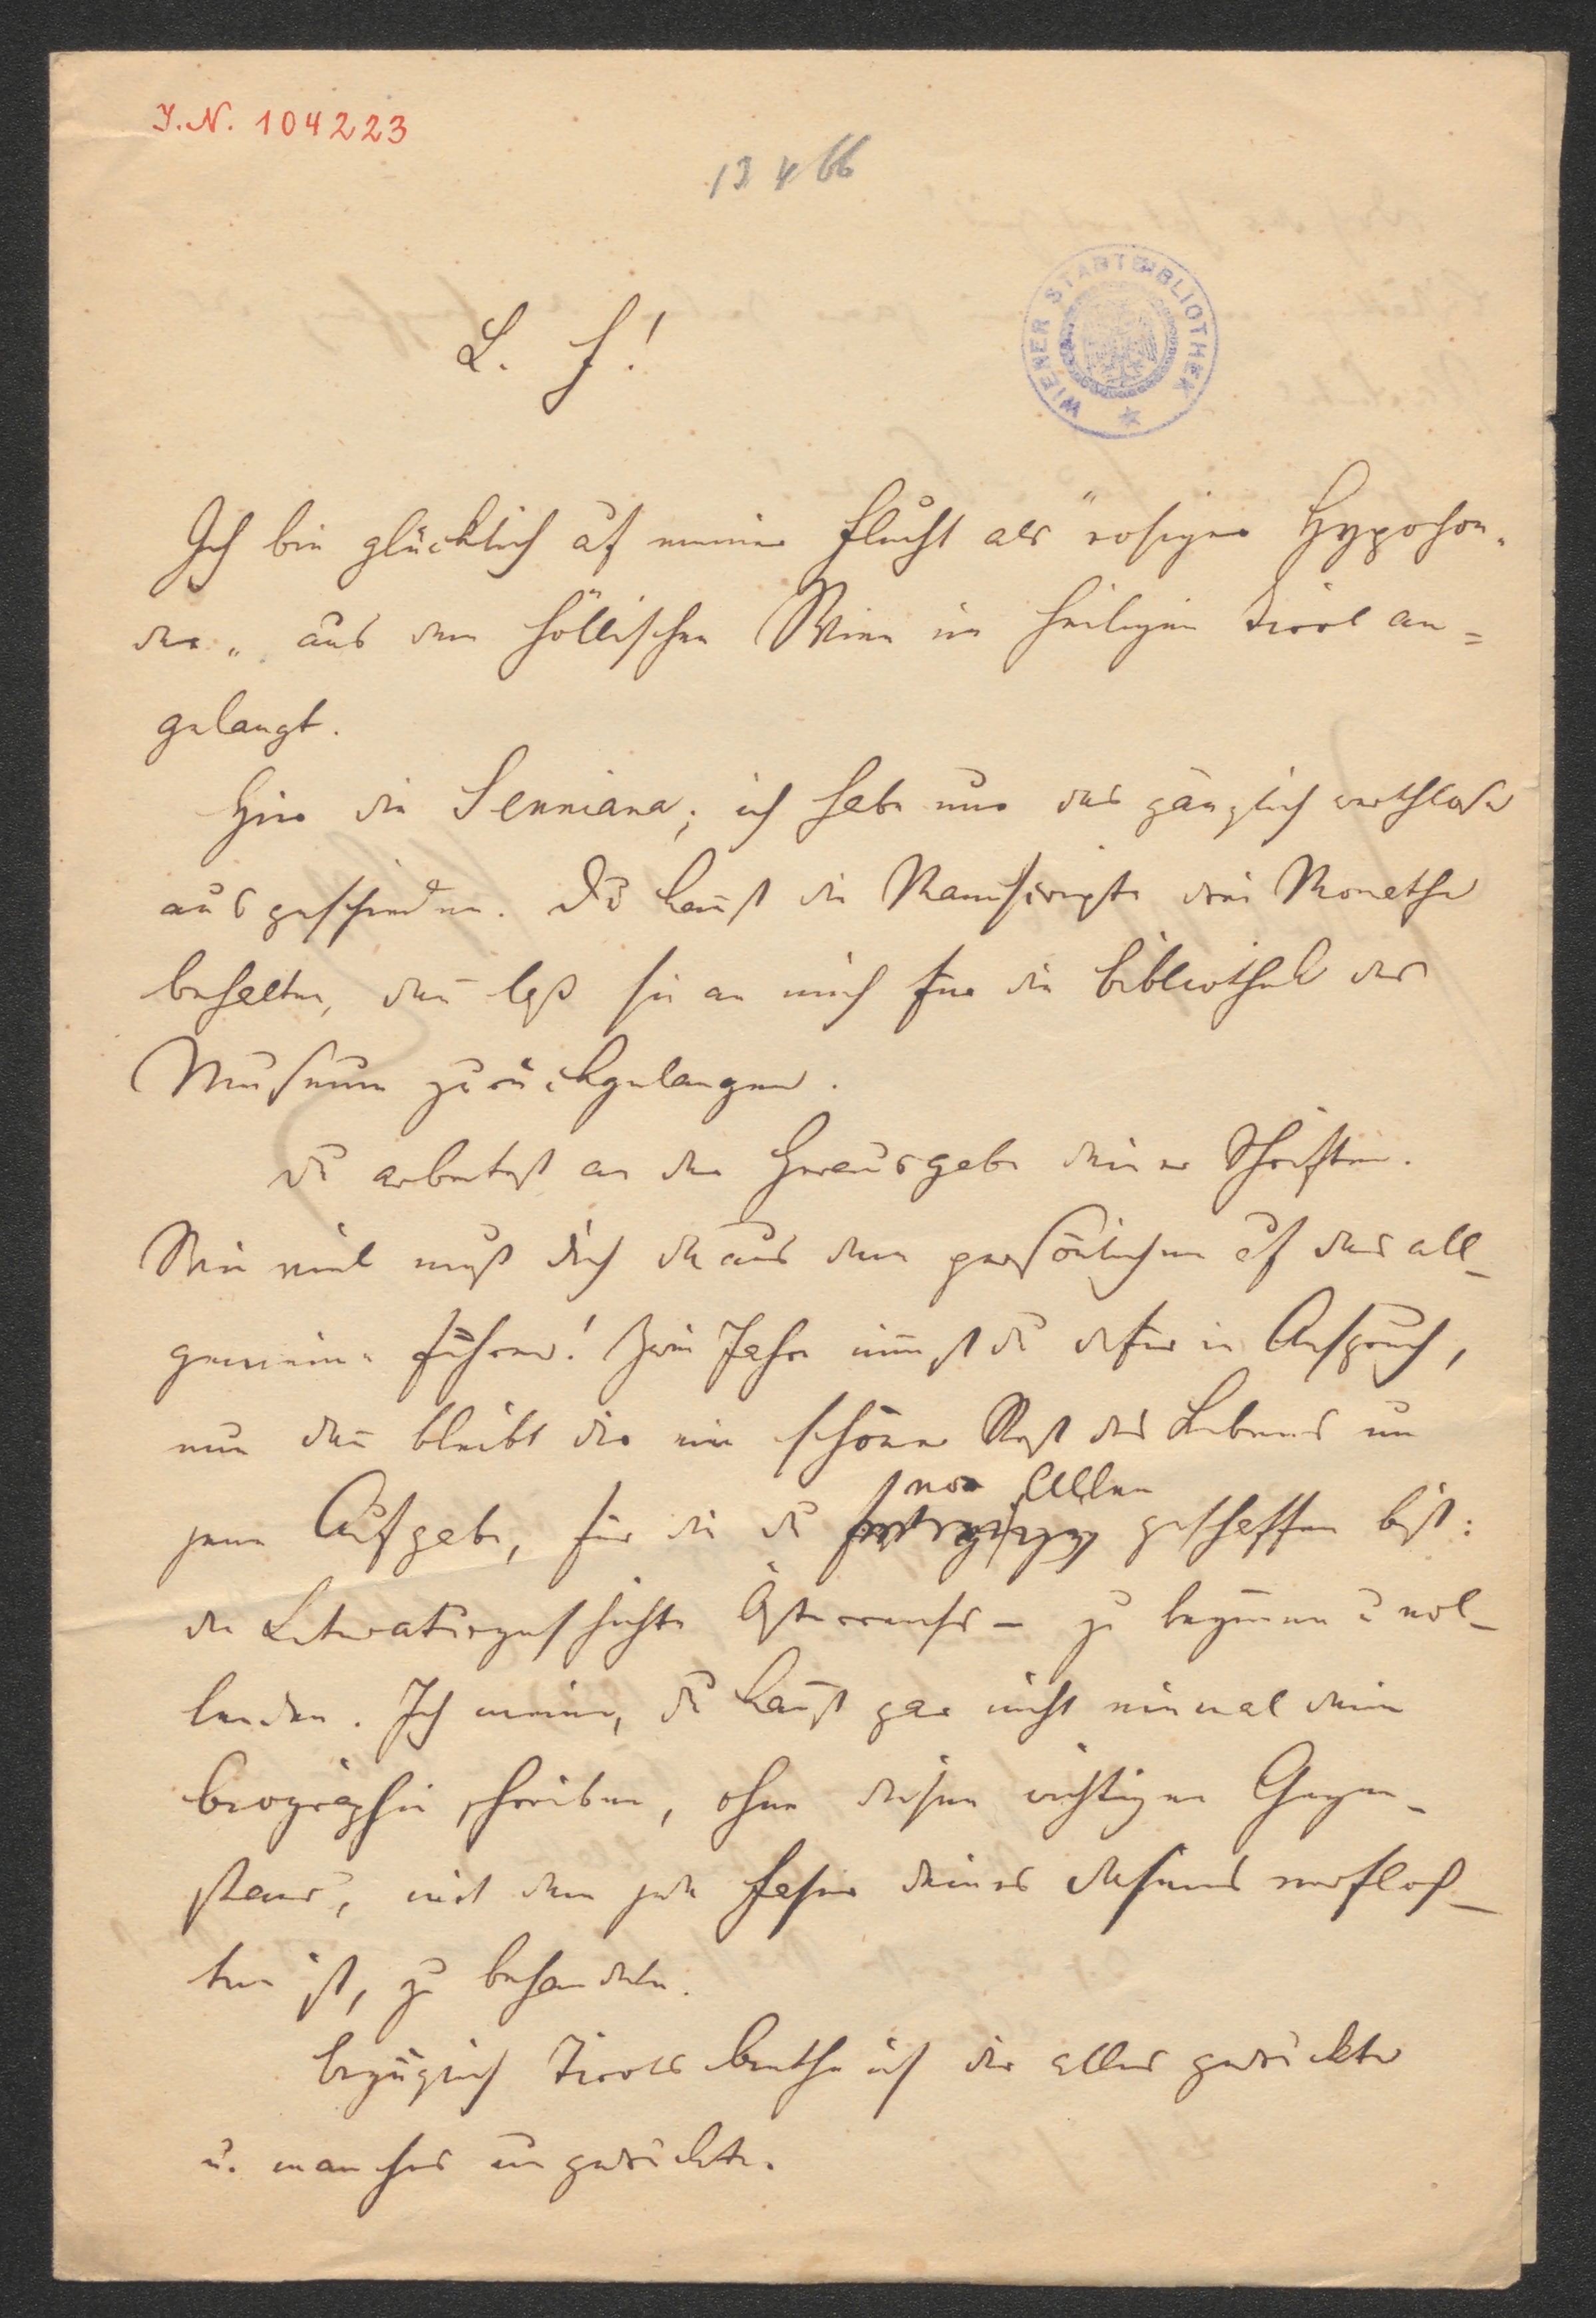 I.N. 104223
13466
WIENER STADTBIBLIOTHEK
L. F!
Ich bin glücklich auf meiner Flucht als "rosiger Hypochon-
der" aus dem höllischen Wien im heiligen Tirol an=
gelangt.
Hier die Senniana; ich habe nur das gänzlich werthlose
ausgeschieden. Du kanst die Manuscripte drei Monathe
behalten, dan laß sie an mich für die Bibliothek des
Museum zurückgelangen.
Du arbeitest an der Herausgabe deiner Schriften.
Wie viel muß dich da aus dem persönlichen auf das all-
gemeine führen! Zwei Jahre nimst du dafür in Anspruch,
nun dan bleibt dir ein schöner Rest des Lebens um
jene Aufgabe, für die du vor Allen geschaffen bist:
die Literaturgeschichte Österreichs - zu beginnen u vol-
lenden. Ich meine, du kanst gar nicht einmal deine
Biographie schreiben, ohne diesen wichtigen Gegen-
stand, mit dem jede Faser deines Daseins verfloch-
ten ist, zu behandeln.
Bezüglich Tirols biethe ich dir alles gedruckte
u. manches ungedruckte.